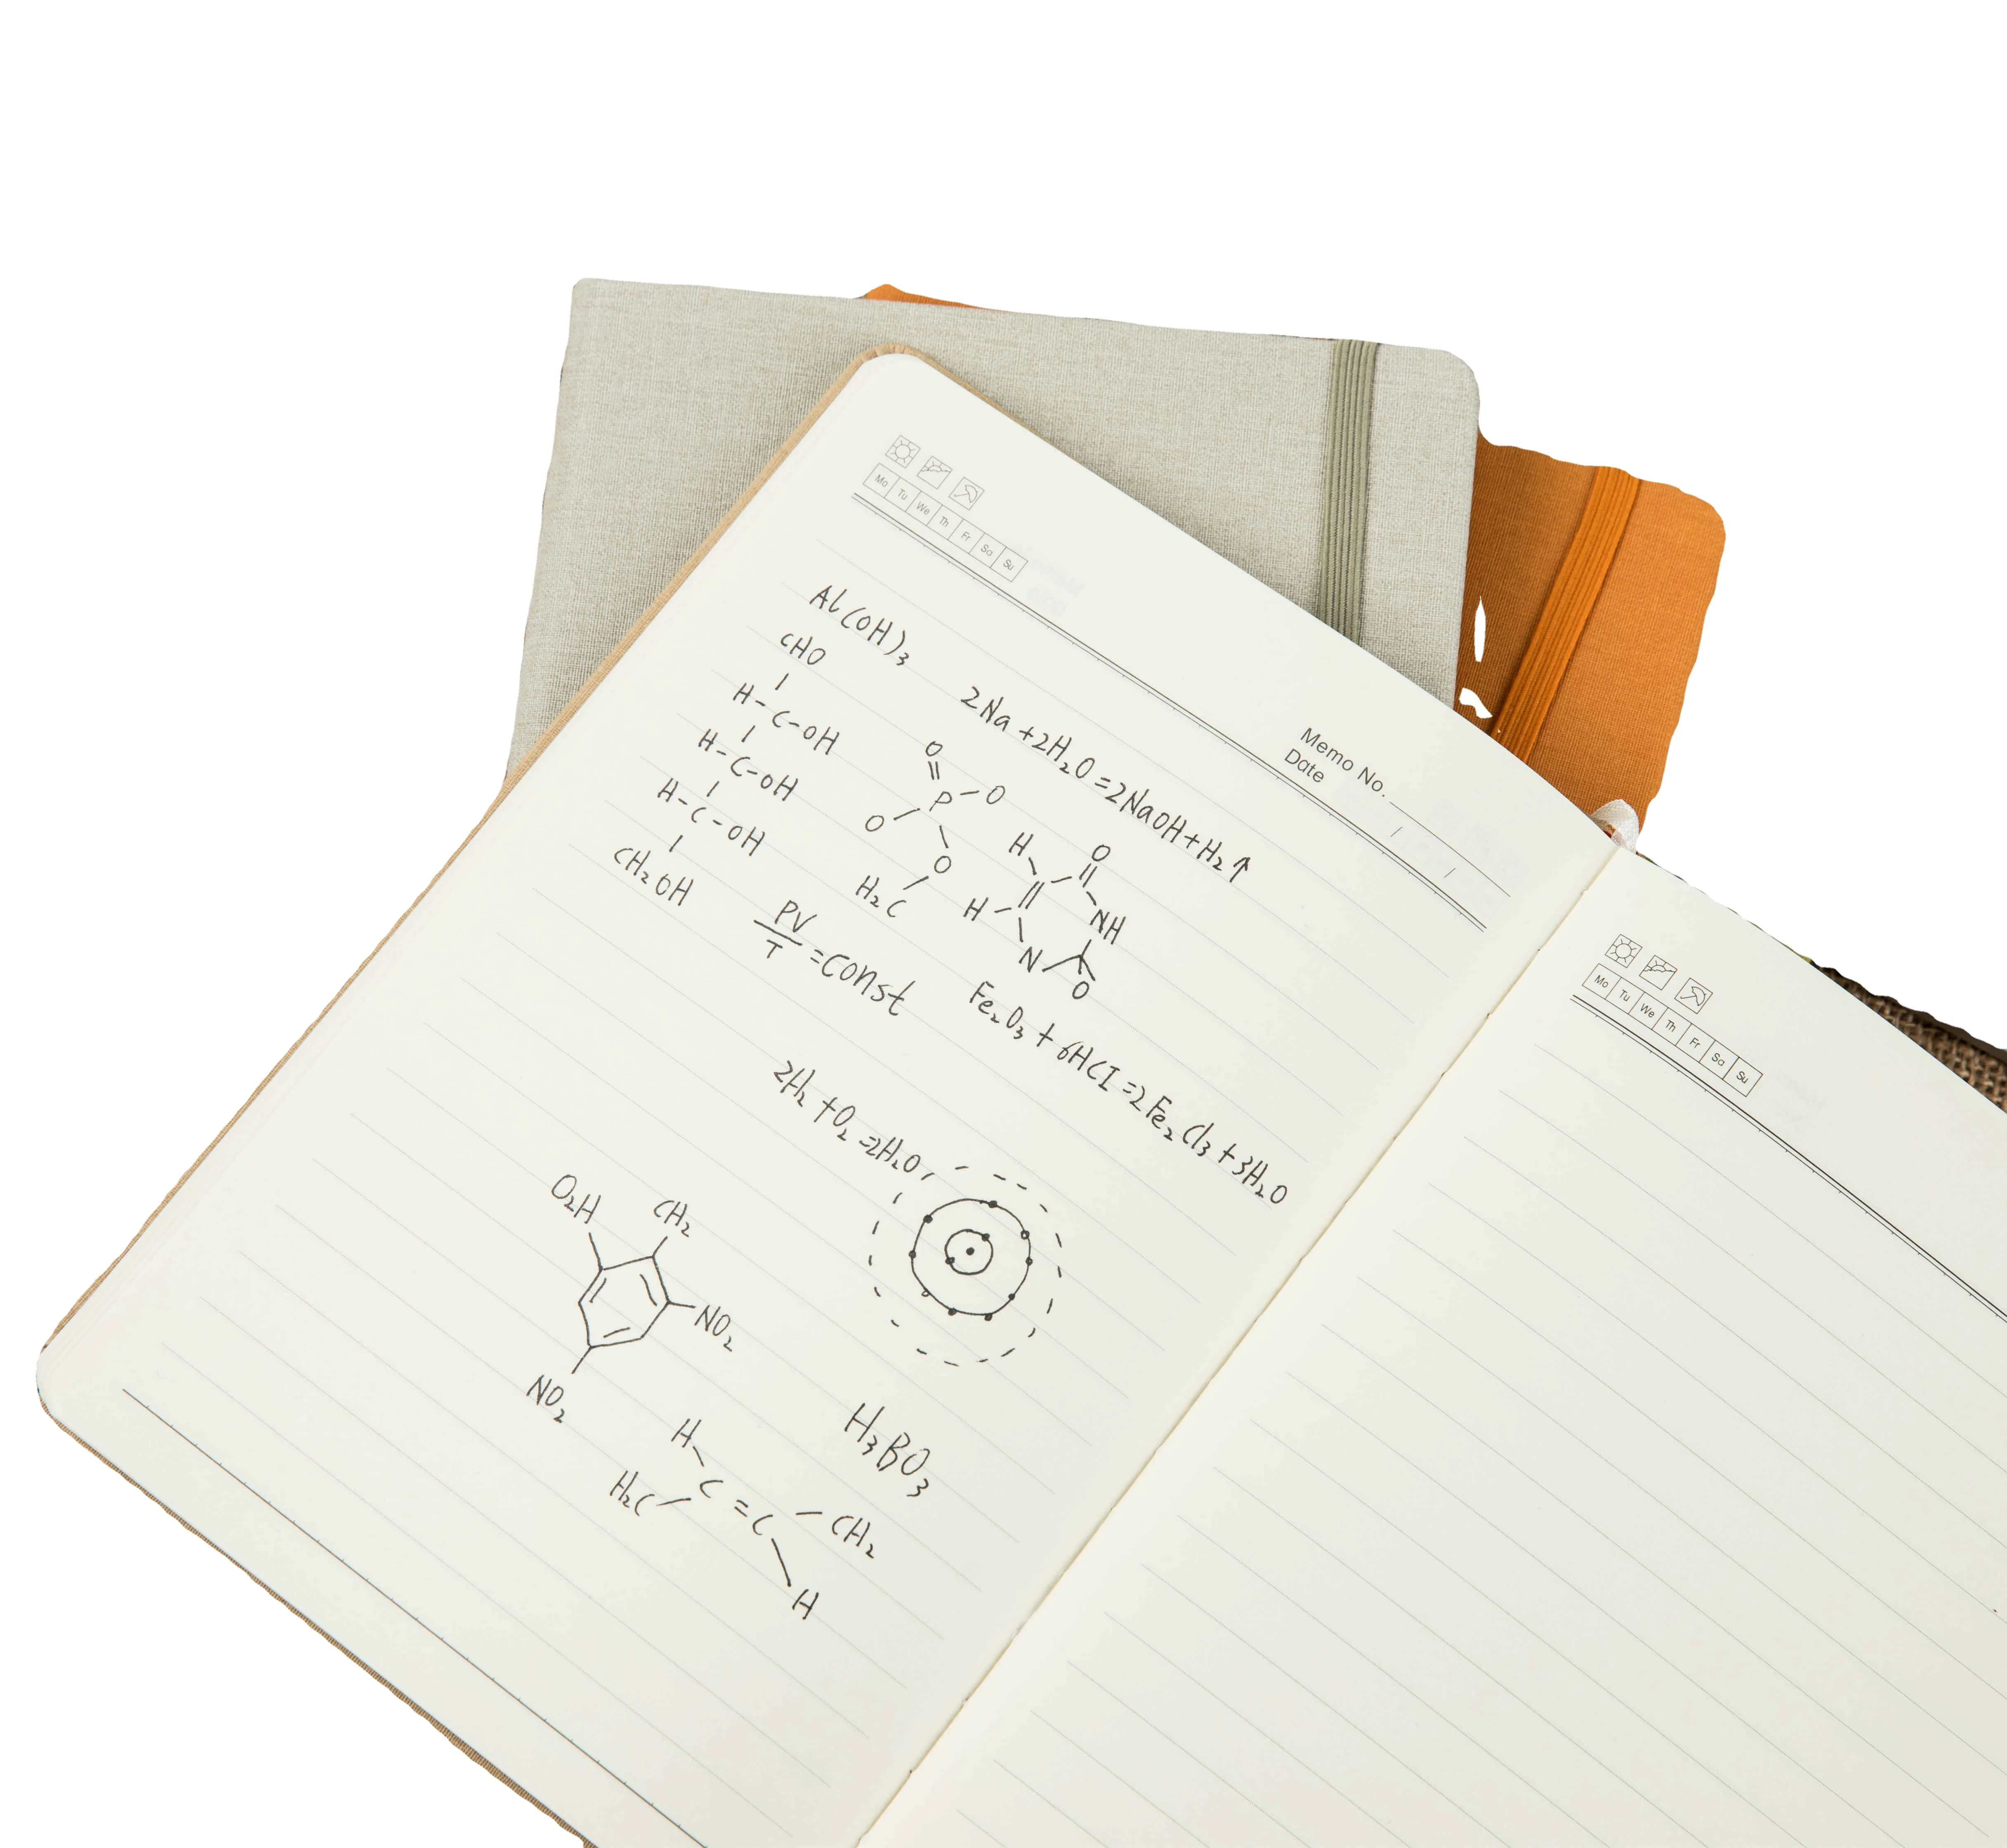 Mo Tu We Th Fr Sa Su
Memo No.
Date / /
Al(OH)₃
2Na+2H₂O=2NaOH+H₂↑
CHO
H-C-OH
H-C-OH
H-C-OH
CH₂OH
O
P-O
O
O
H₂C
H O
H NH
N O
PV/T=const
Fe₂O₃+6HCl=2Fe₂Cl₃+3H₂O
2H₂+O₂=2H₂O
O₂H CH₂
NO₂
NO₂
H₃BO₃
H
H₂C C=C CH₂
H
Mo Tu We Th Fr Sa Su